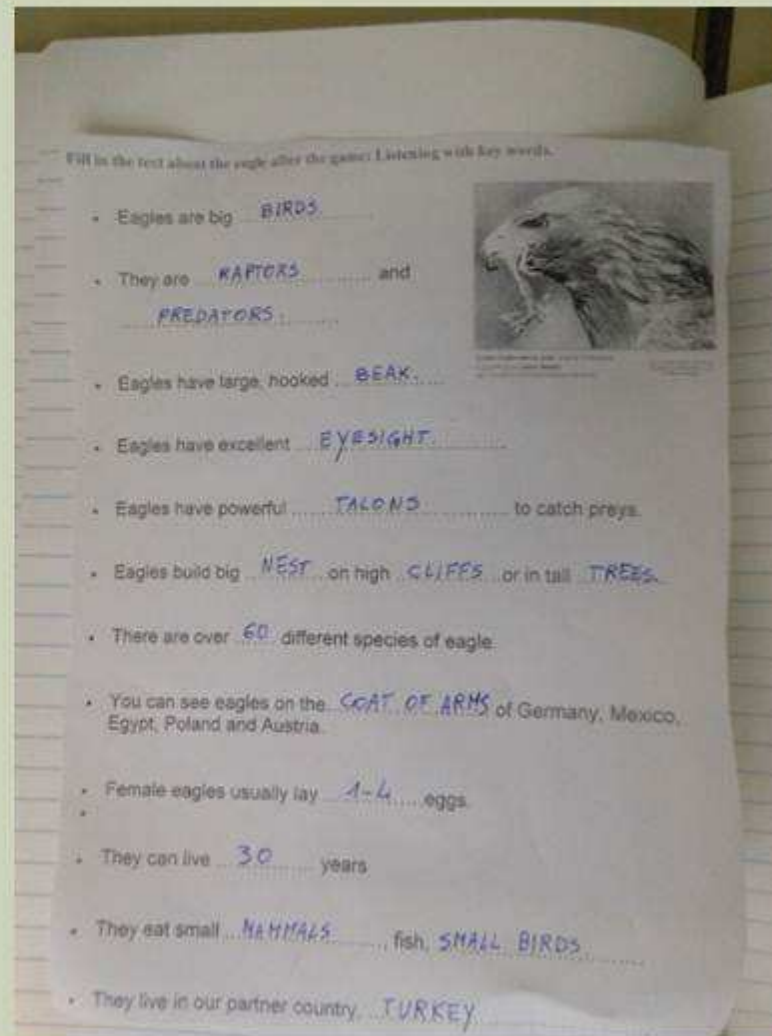 Fill in the text about the eagle after the game: Listening with key words.
• Eagles are big BIRDS
• They are RAPTORS and
PREDATORS.
• Eagles have large, hooked BEAK.
• Eagles have excellent EYESIGHT
• Eagles have powerful TALONS to catch preys.
• Eagles build big NEST on high CLIFFS or in tall TREES.
• There are over 60 different species of eagle.
• You can see eagles on the COAT OF ARMS of Germany, Mexico,
Egypt, Poland and Austria.
• Female eagles usually lay 1-4 eggs.
•
• They can live 30 years
• They eat small MAMMALS, fish, SMALL BIRDS
• They live in our partner country, TURKEY